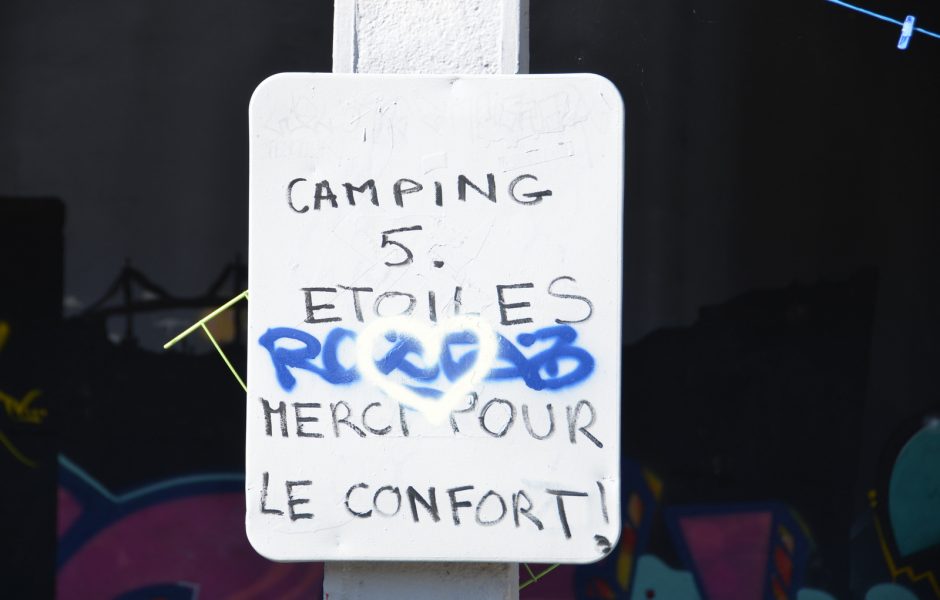 CAMPING
5.
ETOILES
MERCI POUR
LE CONFORT!